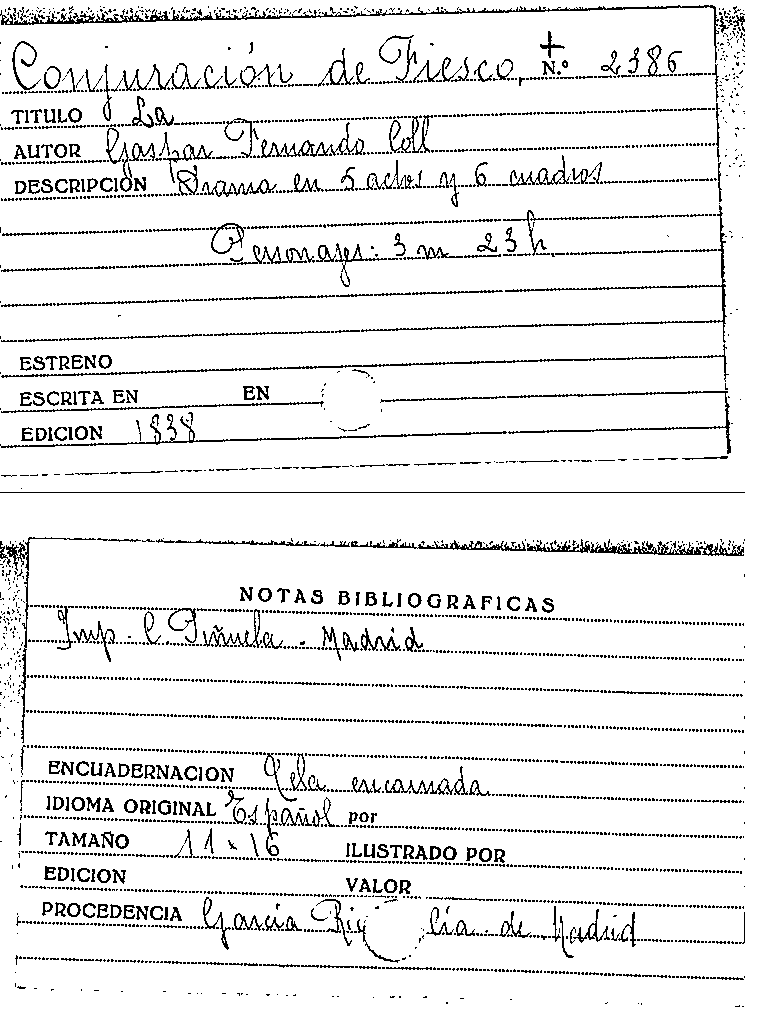 Conjuración de Fiesco, N.º 2386
TITULO La
AUTOR Gaspar Fernando Coll
DESCRIPCIÓN Drama en 5 actos y 6 cuadros
Personajes: 3 m 23 h
ESTRENO
ESCRITA EN EN
EDICION 1838
NOTAS BIBLIOGRAFICAS
Imp. C. Piñuela - Madrid
ENCUADERNACION Tela encarnada
IDIOMA ORIGINAL Español por
TAMAÑO 11 x 16 ILUSTRADO POR
EDICION VALOR
PROCEDENCIA García de Madrid